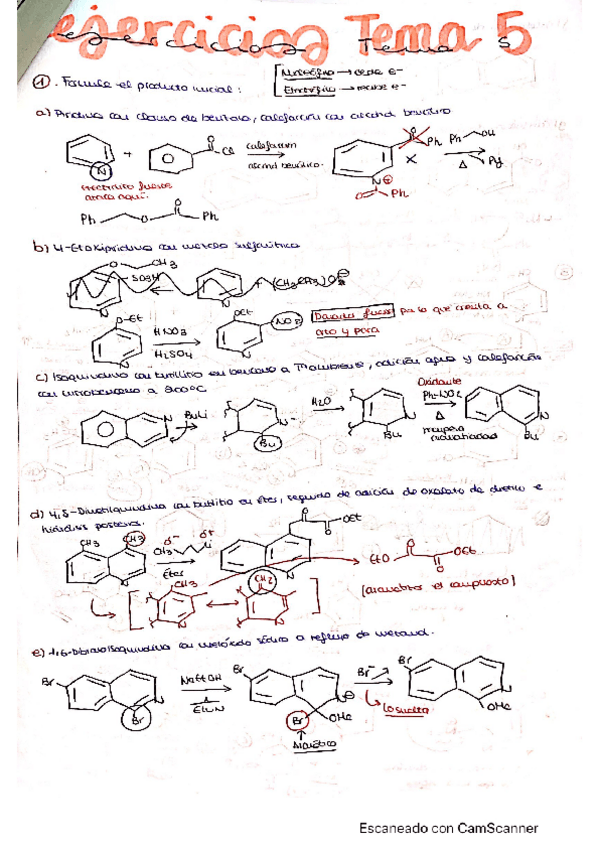 ejercicios Tema 5
① . Formule el producto inicial : Nucleófilo → cede e-
Electrófilo → recibe e-
a) Piridina con cloruro de benzoilo, calefacción con alcohol bencílico
N + O Cl calefacción alcohol bencílico. Ph N⊕ O Ph X Ph OH Δ Py
electrófilo fuerte ataca aquí.
Ph O O Ph
b) 4-Etoxipiridina con mezcla sulfonítrica
O CH3 SO3H N N
O-Et N HNO3 H2SO4 OEt NO2 N Dador fuerte por lo que orienta a orto y para
c) Isoquinolina con butillitio en benceno a T ambiente, adición agua y calefacción
con nitrobenceno a 200ºC
N BuLi N- Bu H2O N Bu Oxidante Ph-NO2 Δ recupera aromaticidad N Bu
d) 4,5-Dimetilquinolina con butillitio en éter, seguido de adición de oxalato de dietilo e
hidrólisis posterior.
CH3 CH3 N δ- δ+ CH3 Li Éter O O OEt N EtO O O OEt
CH3 N CH2 N
e) 1,6-Dibromoisoquinolina con metóxido sódico a reflujo de metanol.
Br N Br Br N⊖ Br OMe Br- Lo suelta Br N OMe
Escaneado con CamScanner